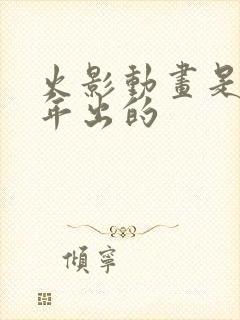 火影動畫是
年出的
傾寧